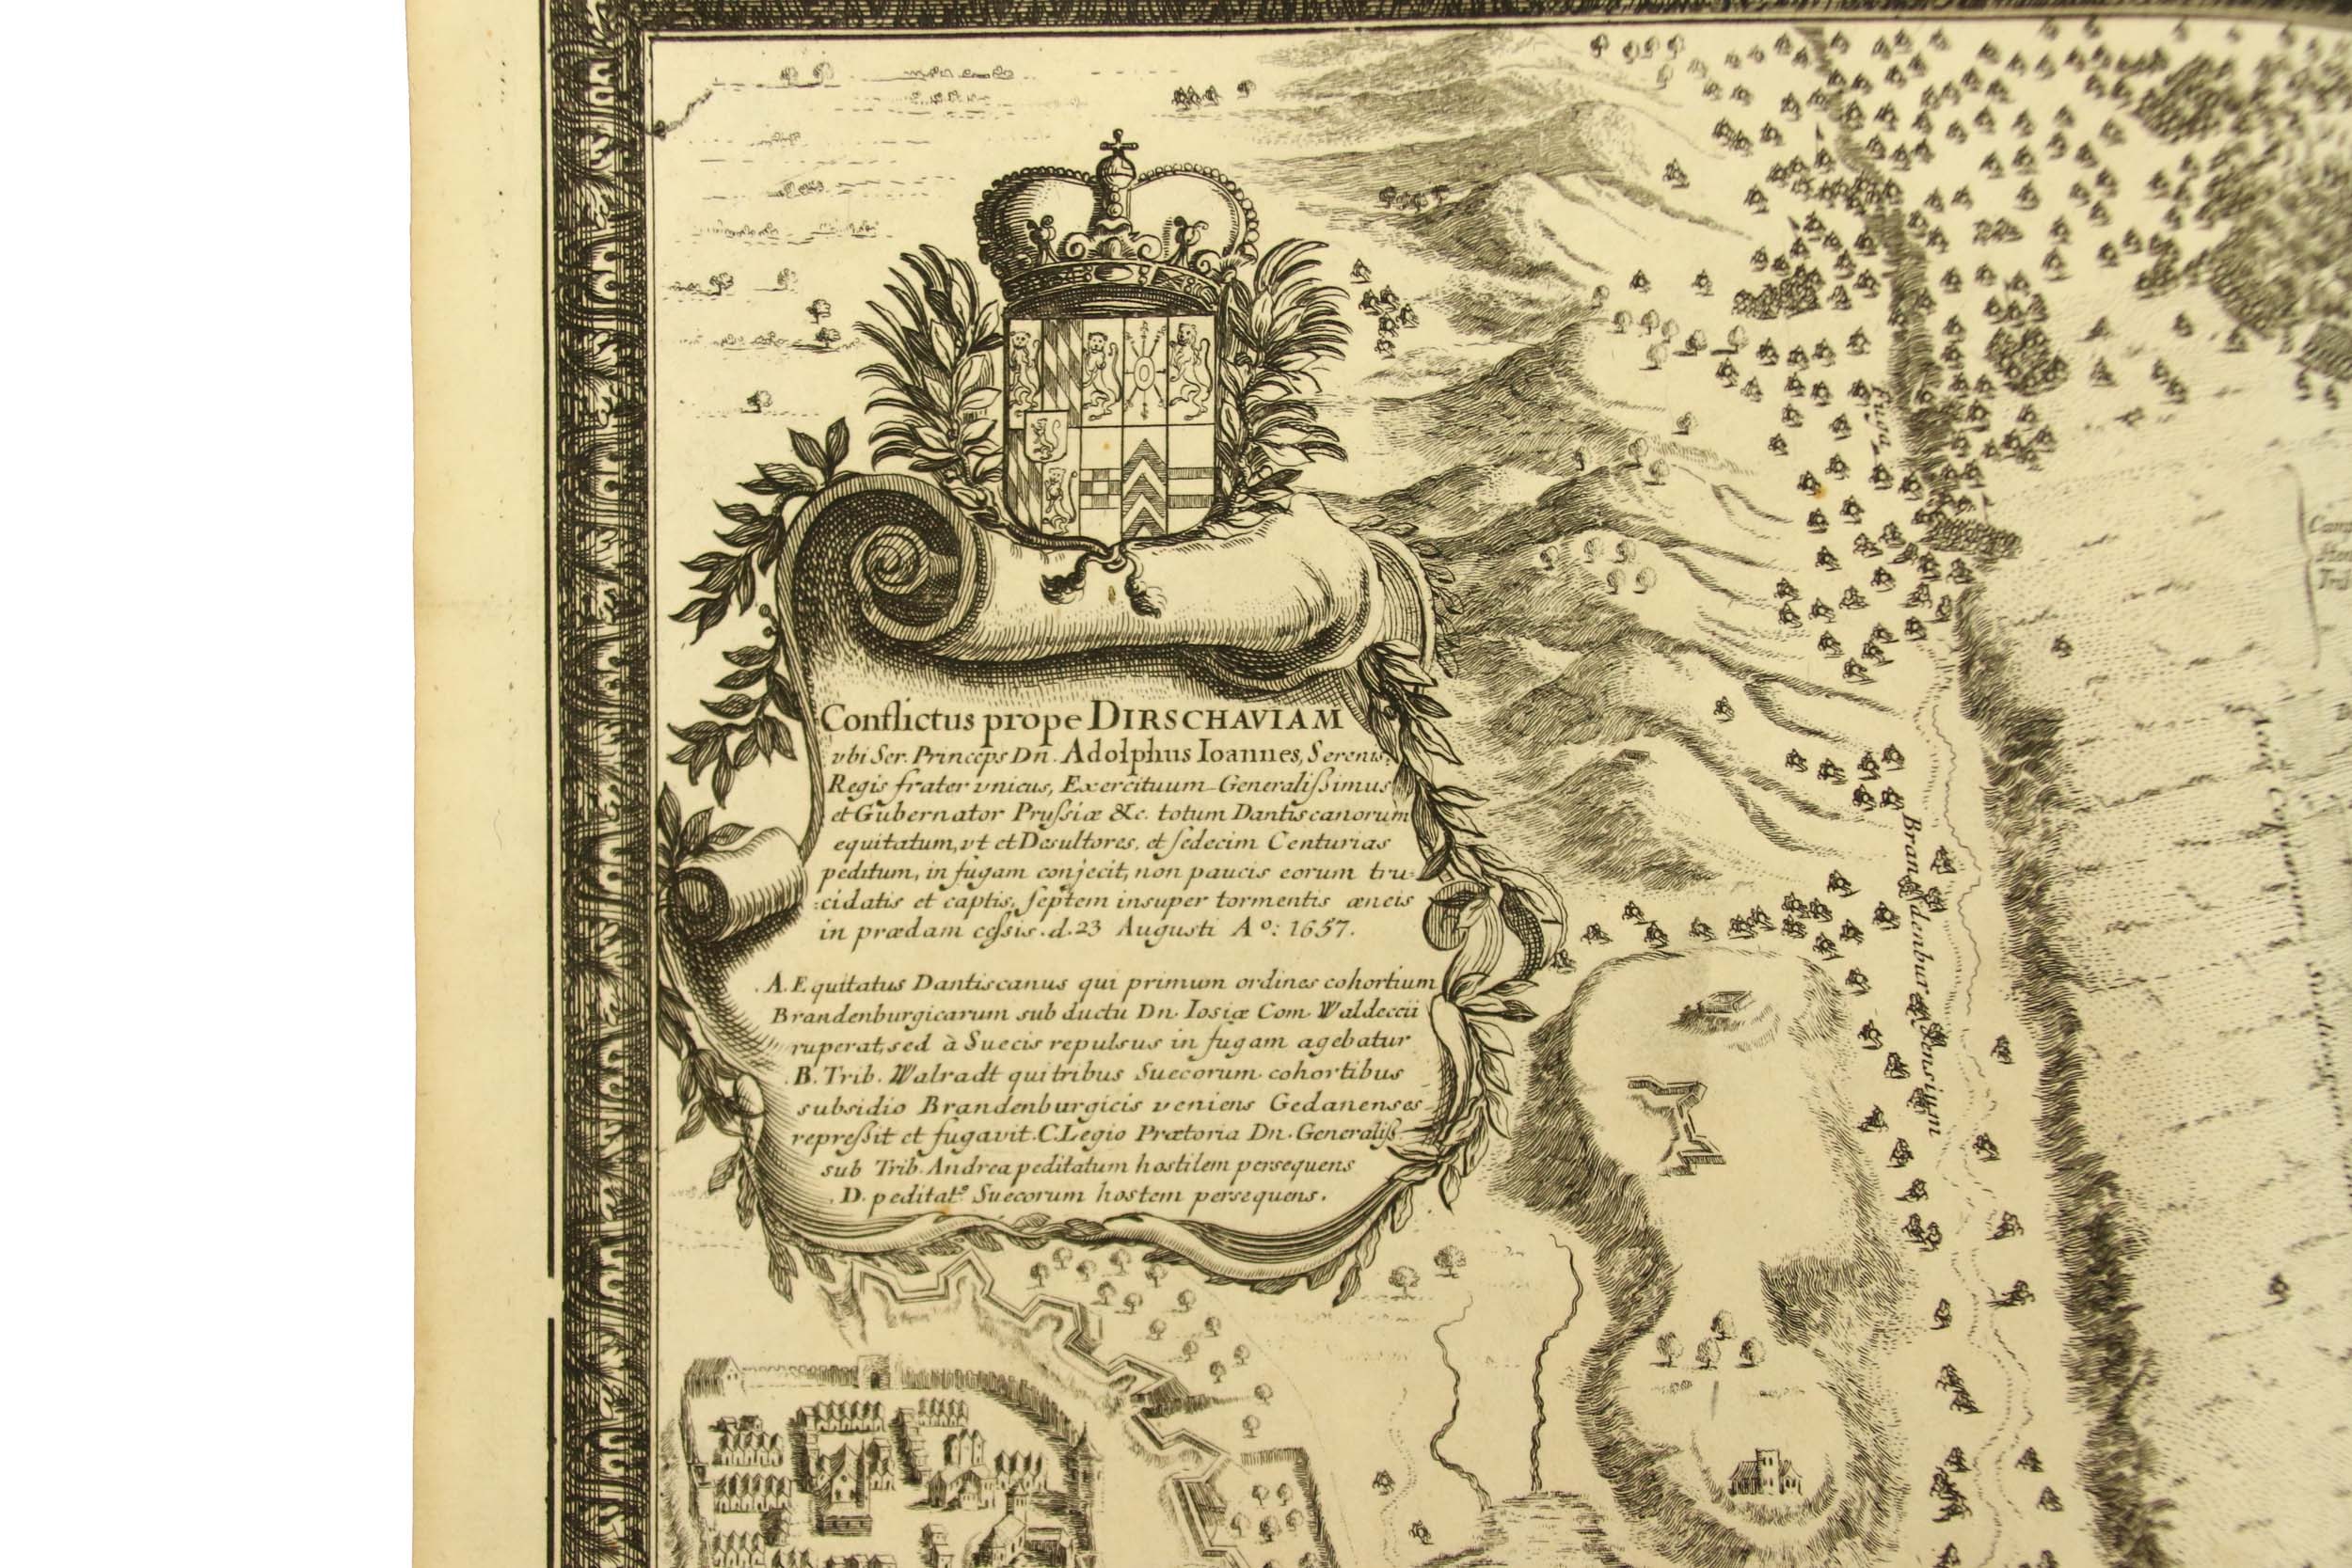 Conflictus prope DIRSCHAVIAM
vbi Ser. Princeps Dn. Adolphus Ioannes, Sereniss:
Regis frater vnicus, Exercituum Generalißimus
et Gubernator Prußiæ &c. totum Dantiscanorum
equitatum, vt et Desultores, et ſedecim Centurias
peditum, in fugam conjecit, non paucis eorum tru-
:cidatis et captis, ſeptem insuper tormentis æneis
in prædam ceßis. d. 23 Augusti Aº: 1657.
A. Equitatus Dantiscanus qui primum ordines cohortium
Brandenburgicarum sub ductu Dn. Iosiæ Com. Waldeccii
ruperat, sed à Suecis repulsus in fugam agebatur
B. Trib. Walradt qui tribus Suecorum cohortibus
subsidio Brandenburgicis veniens Gedanenses
repreßit et fugavit. C. Legio Prætoria Dn. Generaliß.
sub Trib. Andrea peditatum hostilem persequens
D. peditat9 Suecorum hostem persequens.
Fuga
Brandenburgensium
Copiarum Suedicarum